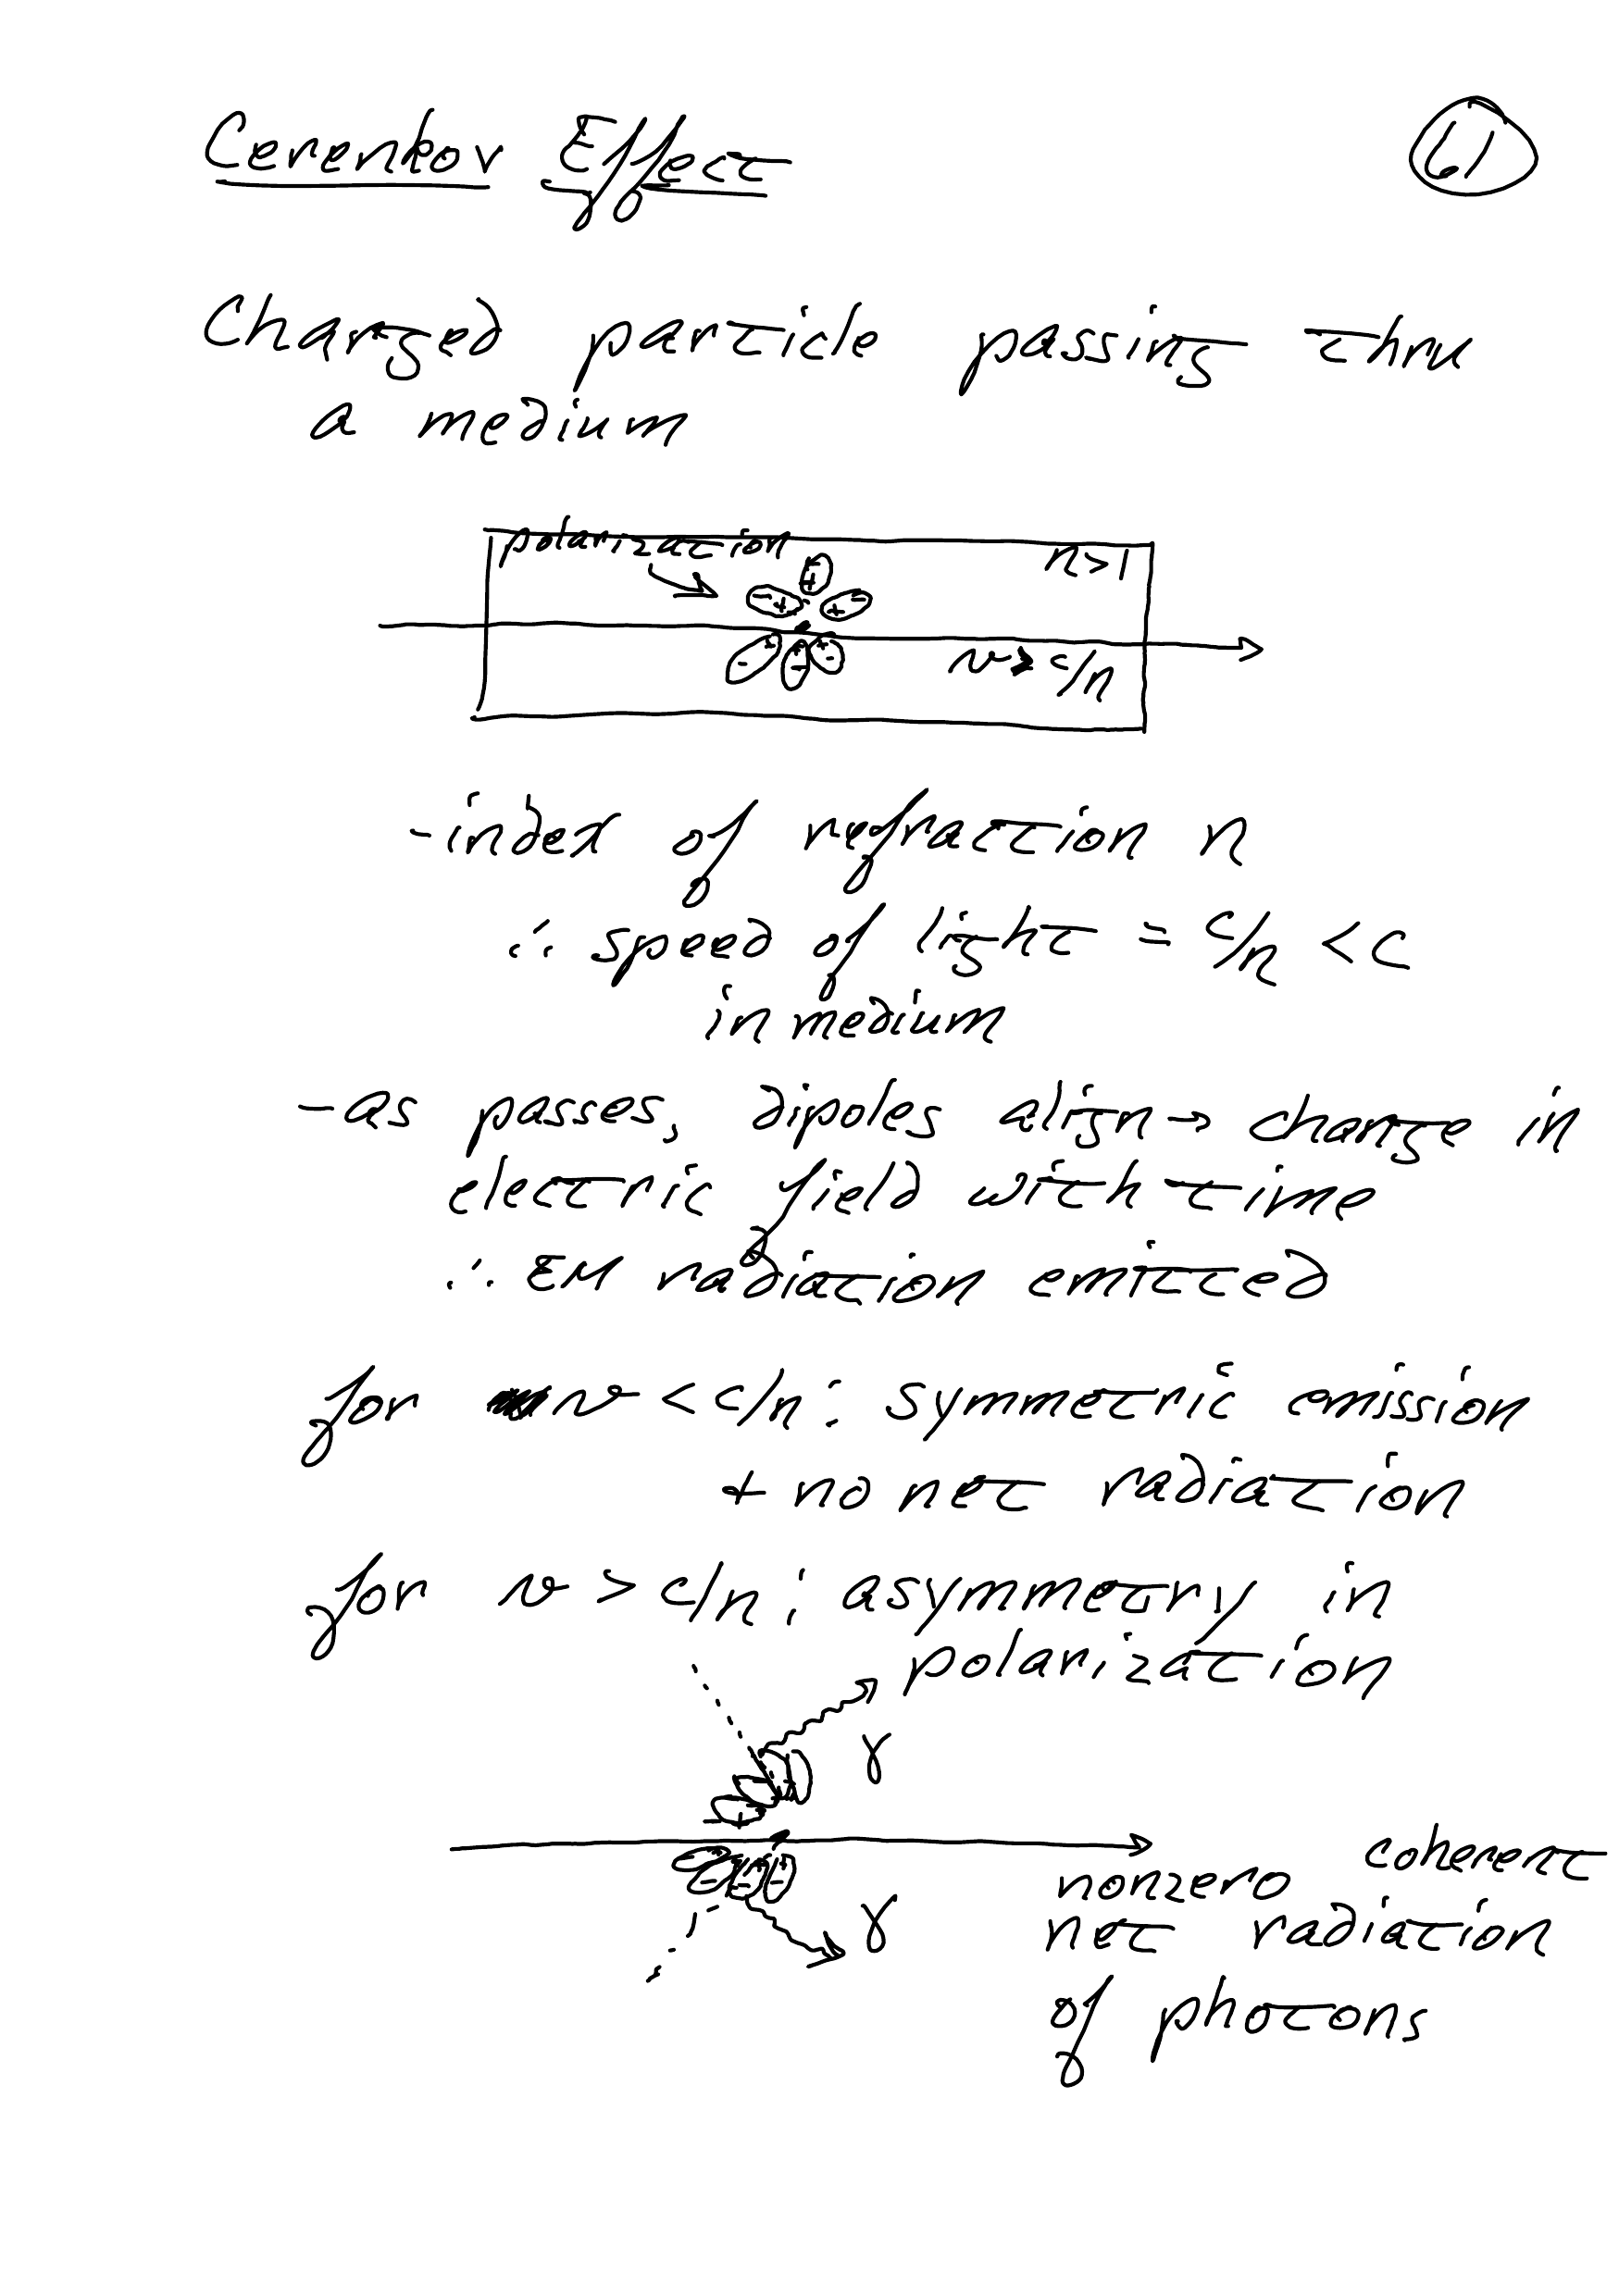 Cerenkov Effect
61
Charged particle passing thru
a medium
polarization
n>1
v > c/n
-index of refraction n
∴ speed of light = c/n < c
in medium
- as passes, dipoles align → change in
electric field with time
∴ EM radiation emitted
for v < c/n : symmetric emission
+ no net radiation
for v > c/n : asymmetry in
polarization
γ
γ
nonzero coherent
net radiation
of photons